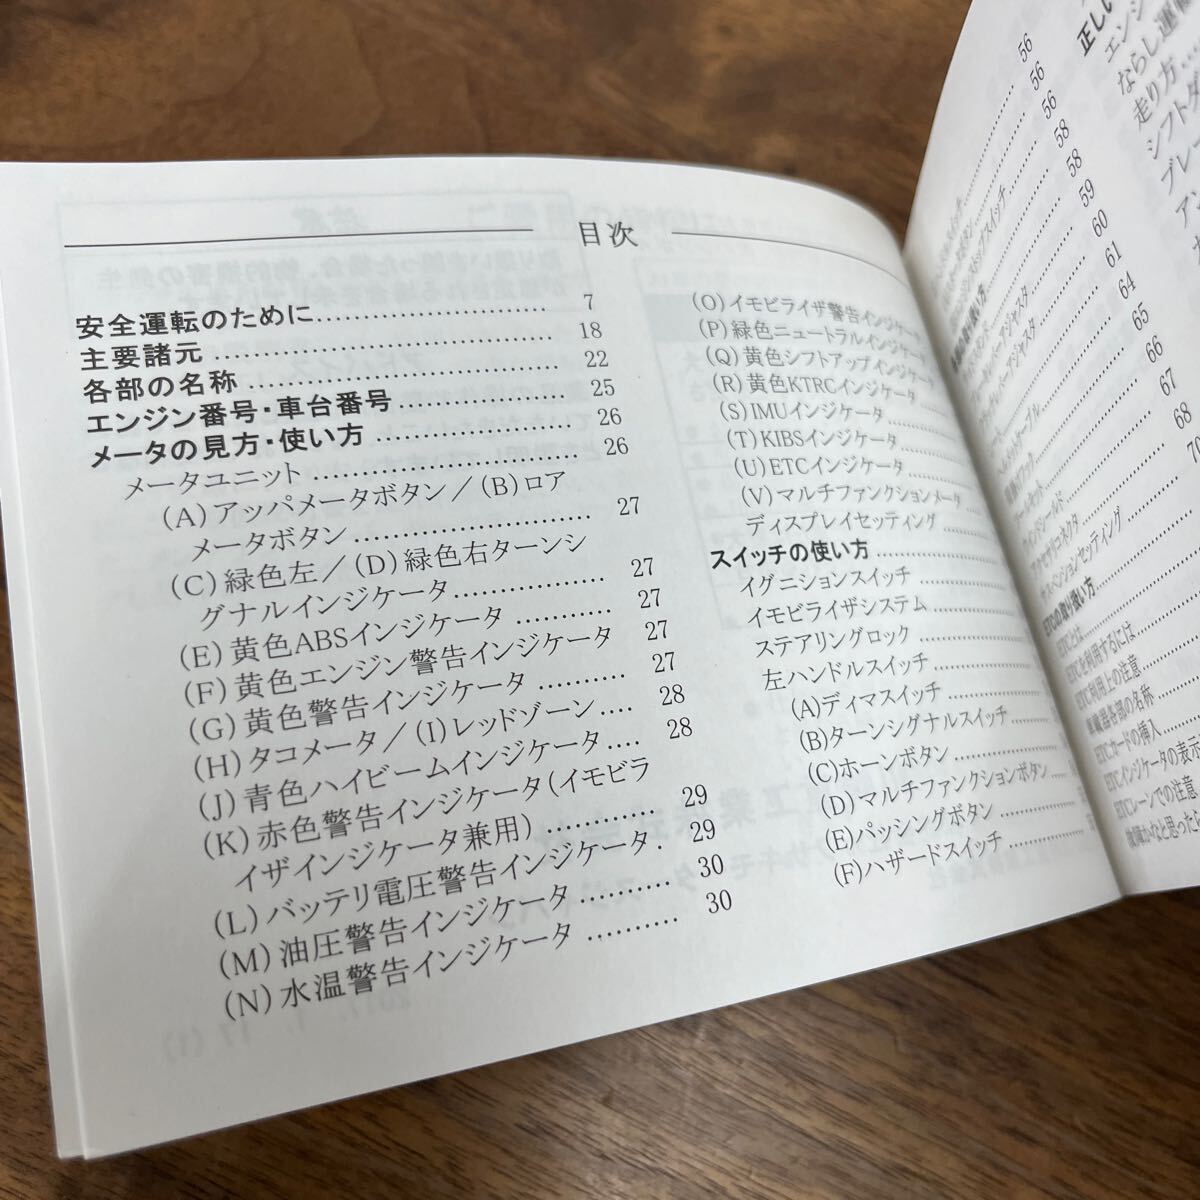 目次
安全運転のために 7
主要諸元 18
各部の名称 22
エンジン番号・車台番号 25
メータの見方・使い方 26
メータユニット 26
(A)アッパメータボタン/(B)ロア
メータボタン 27
(C)緑色左/(D)緑色右ターンシ
グナルインジケータ 27
(E)黄色ABSインジケータ 27
(F)黄色エンジン警告インジケータ 27
(G)黄色警告インジケータ 27
(H)タコメータ/(I)レッドゾーン 28
(J)青色ハイビームインジケータ 28
(K)赤色警告インジケータ(イモビラ
イザインジケータ兼用) 29
(L)バッテリ電圧警告インジケータ 29
(M)油圧警告インジケータ 30
(N)水温警告インジケータ 30
(O)イモビライザ警告インジケータ
(P)緑色ニュートラルインジケータ
(Q)黄色シフトアップインジケータ
(R)黄色KTRCインジケータ
(S)IMUインジケータ
(T)KIBSインジケータ
(U)ETCインジケータ
(V)マルチファンクションメータ
ディスプレイセッティング
スイッチの使い方
イグニションスイッチ
イモビライザシステム
ステアリングロック
左ハンドルスイッチ
(A)ディマスイッチ
(B)ターンシグナルスイッチ
(C)ホーンボタン
(D)マルチファンクションボタン
(E)パッシングボタン
(F)ハザードスイッチ
56
56
56
58
58
59
60
61
64
65
66
67
68
70
サスペンションセッティング
ETCの取り扱い方
ETCとは
ETCを利用するには
ETC利用上の注意
車載器各部の名称
ETCカードの挿入
ETCインジケータの表示
ETCレーンでの注意
故障かなと思ったら
正しい
エンジ
ならし運転
走り方
シフトダ
ブレー